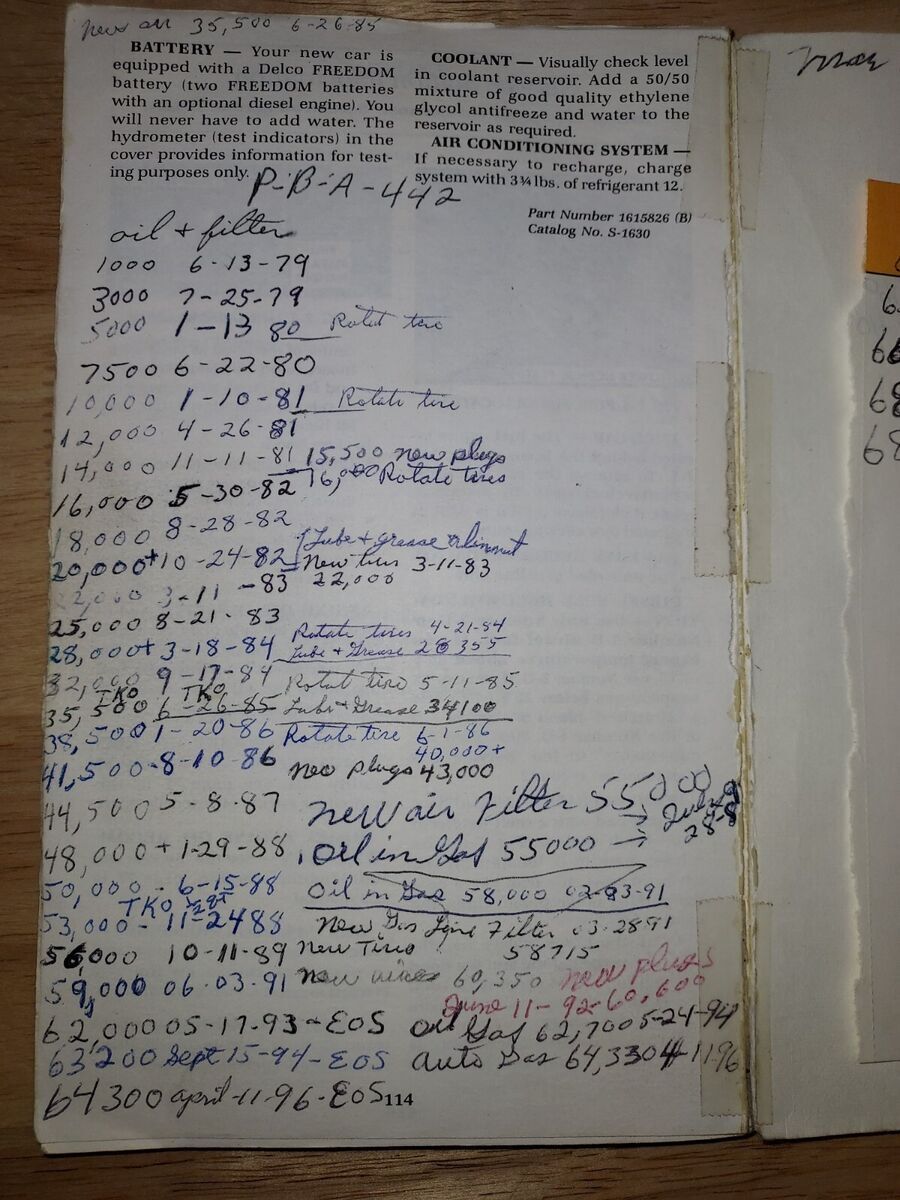 new 35,500 6-26-85
BATTERY — Your new car is
equipped with a Delco FREEDOM
battery (two FREEDOM batteries
with an optional diesel engine). You
will never have to add water. The
hydrometer (test indicators) in the
cover provides information for test-
ing purposes only.
COOLANT — Visually check level
in coolant reservoir. Add a 50/50
mixture of good quality ethylene
glycol antifreeze and water to the
reservoir as required.
AIR CONDITIONING SYSTEM —
If necessary to recharge, charge
system with 3¼ lbs. of refrigerant 12.
Part Number 1615826 (B)
Catalog No. S-1630
P-B-A-442
oil + filter
1000 6-13-79
3000 7-25-79
5000 1-13 80 Rotat tire
7500 6-22-80
10,000 1-10-81 Rotate tire
12,000 4-26-81
14,000 11-11-81 15,500 new plugs
16,000 Rotate tires
16,000 5-30-82
18,000 8-28-82
Lube + grease
20,000+ 10-24-82 New tires 3-11-83
22,000 3-11-83 22,000
25,000 8-21-83
Rotate tires 4-21-84
28,000+ 3-18-84 Lube + Grease 28355
32,000 9-17-84 Rotat tire 5-11-85
TKO TKO
35,500 6-26-85 Lube + Grease 34100
38,500 1-20-86 Rotate tire 6-1-86
40,000+
41,500-8-10-86 New plugs 43,000
44,500 5-8-87 New air Filter 55000
48,000+1-29-88 Oil in Gas 55000 →
50,000 - 6-15-88 Oil in Gas 58,000 03-03-91
TKO
53,000 - 11-24 88 New Gas Line Filter 03.2891
56000 10-11-89 New Tires 58715
59,000 06.03.91 New 60,350 New plugs
June 11-92-60,600
62,000 05-17-93-EOS Oil Gas 62,700 5-24-94
63200 Sept 15-94-EOS auto Gas 64,330 4-11-96
64300 april-11-96-EOS
114
66
68
68